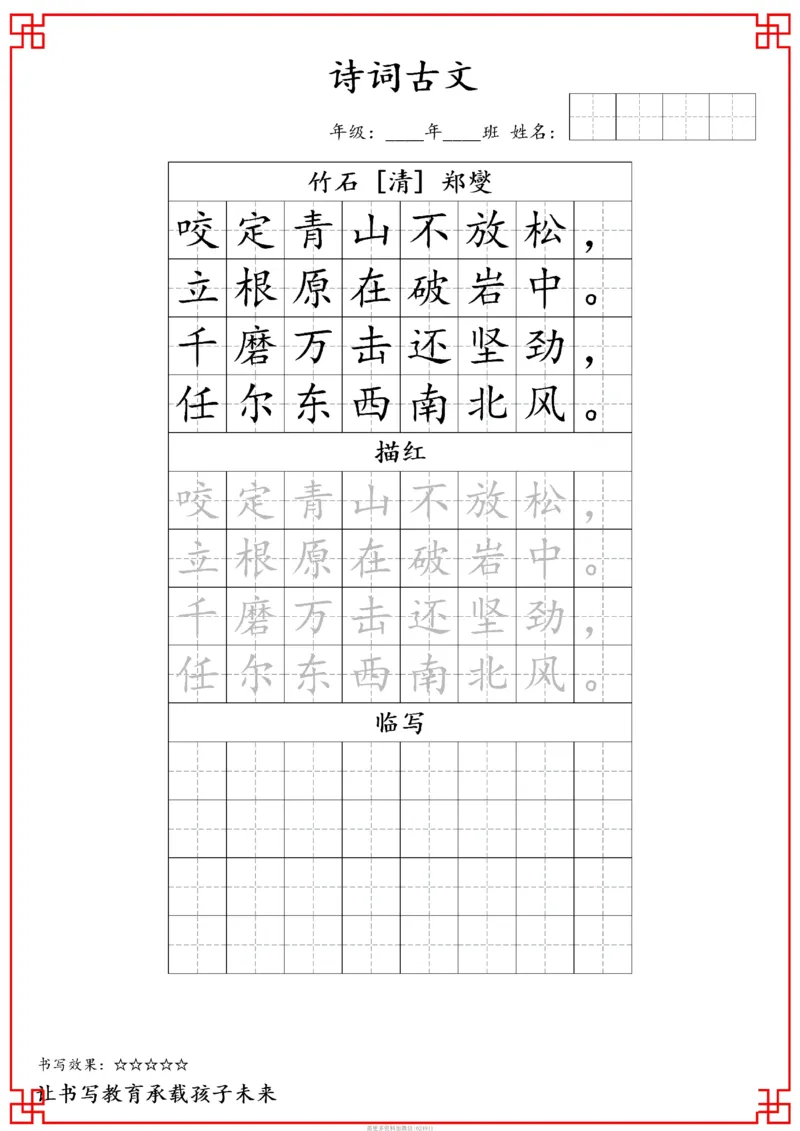 诗词古文
年级：____年____班 姓名：
竹石 [清] 郑燮
咬定青山不放松，
立根原在破岩中。
千磨万击还坚劲，
任尔东西南北风。
描红
咬定青山不放松，
立根原在破岩中。
千磨万击还坚劲，
任尔东西南北风。
临写
书写效果：☆☆☆☆☆
让书写教育承载孩子未来